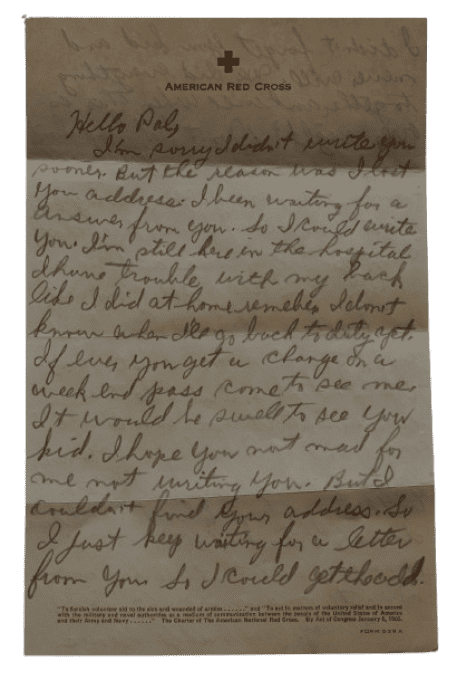 AMERICAN RED CROSS
Hello Pal,
I'm sorry I didn't write you
sooner. But the reason was I lost
you address. I been waiting for a
answer from you. So I could write
you. I'm still here in the hospital
I have trouble with my back
like I did at home remeber I don't
know when I'll go back to duty yet.
If ever you get a change on a
week end pass come to see me.
It would be swell to see you
kid. I hope you not mad for
me not writing you. But I
couldn't find your address. So
I just kep waiting for a letter
from you so I could get the add.
"To furnish volunteer aid to the sick and wounded of armies . . . . . ." and "To act in matters of voluntary relief and in accord
with the military and naval authorities as a medium of communication between the people of the United States of America
and their Army and Navy . . . . . ." The Charter of The American National Red Cross. By Act of Congress January 5, 1905.
FORM 539 A